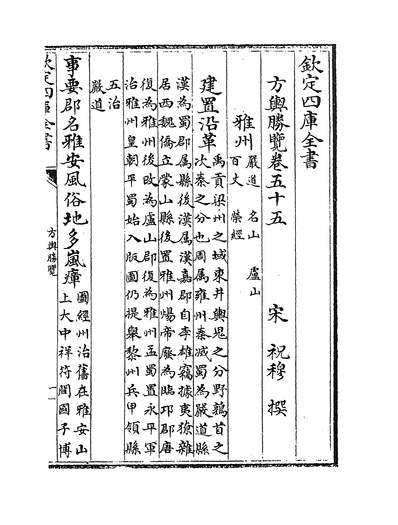 欽定四庫全書
方輿勝覽卷五十五
宋 祝穆 撰
雅州
嚴道 名山 盧山
百丈 榮經
建置沿革
禹貢梁州之域東井輿鬼之分野鶉首之
次秦之分也周属雍州秦滅蜀為嚴道縣
漢為蜀郡属縣後漢属漢嘉郡自李雄竊據夷獠雜
居西魏僑立蒙山縣後置雅州煬帝廢為臨邛郡唐
復為雅州後改為盧山郡復為雅州孟蜀置永平軍
治雅州皇朝平蜀始入版圖仍提舉黎州兵甲領縣
五治
嚴道
事要郡名雅安風俗地多嵐瘴
圖經州治舊在雅安山
上大中祥符間國子博
欽定四庫全書
方輿勝覽
一